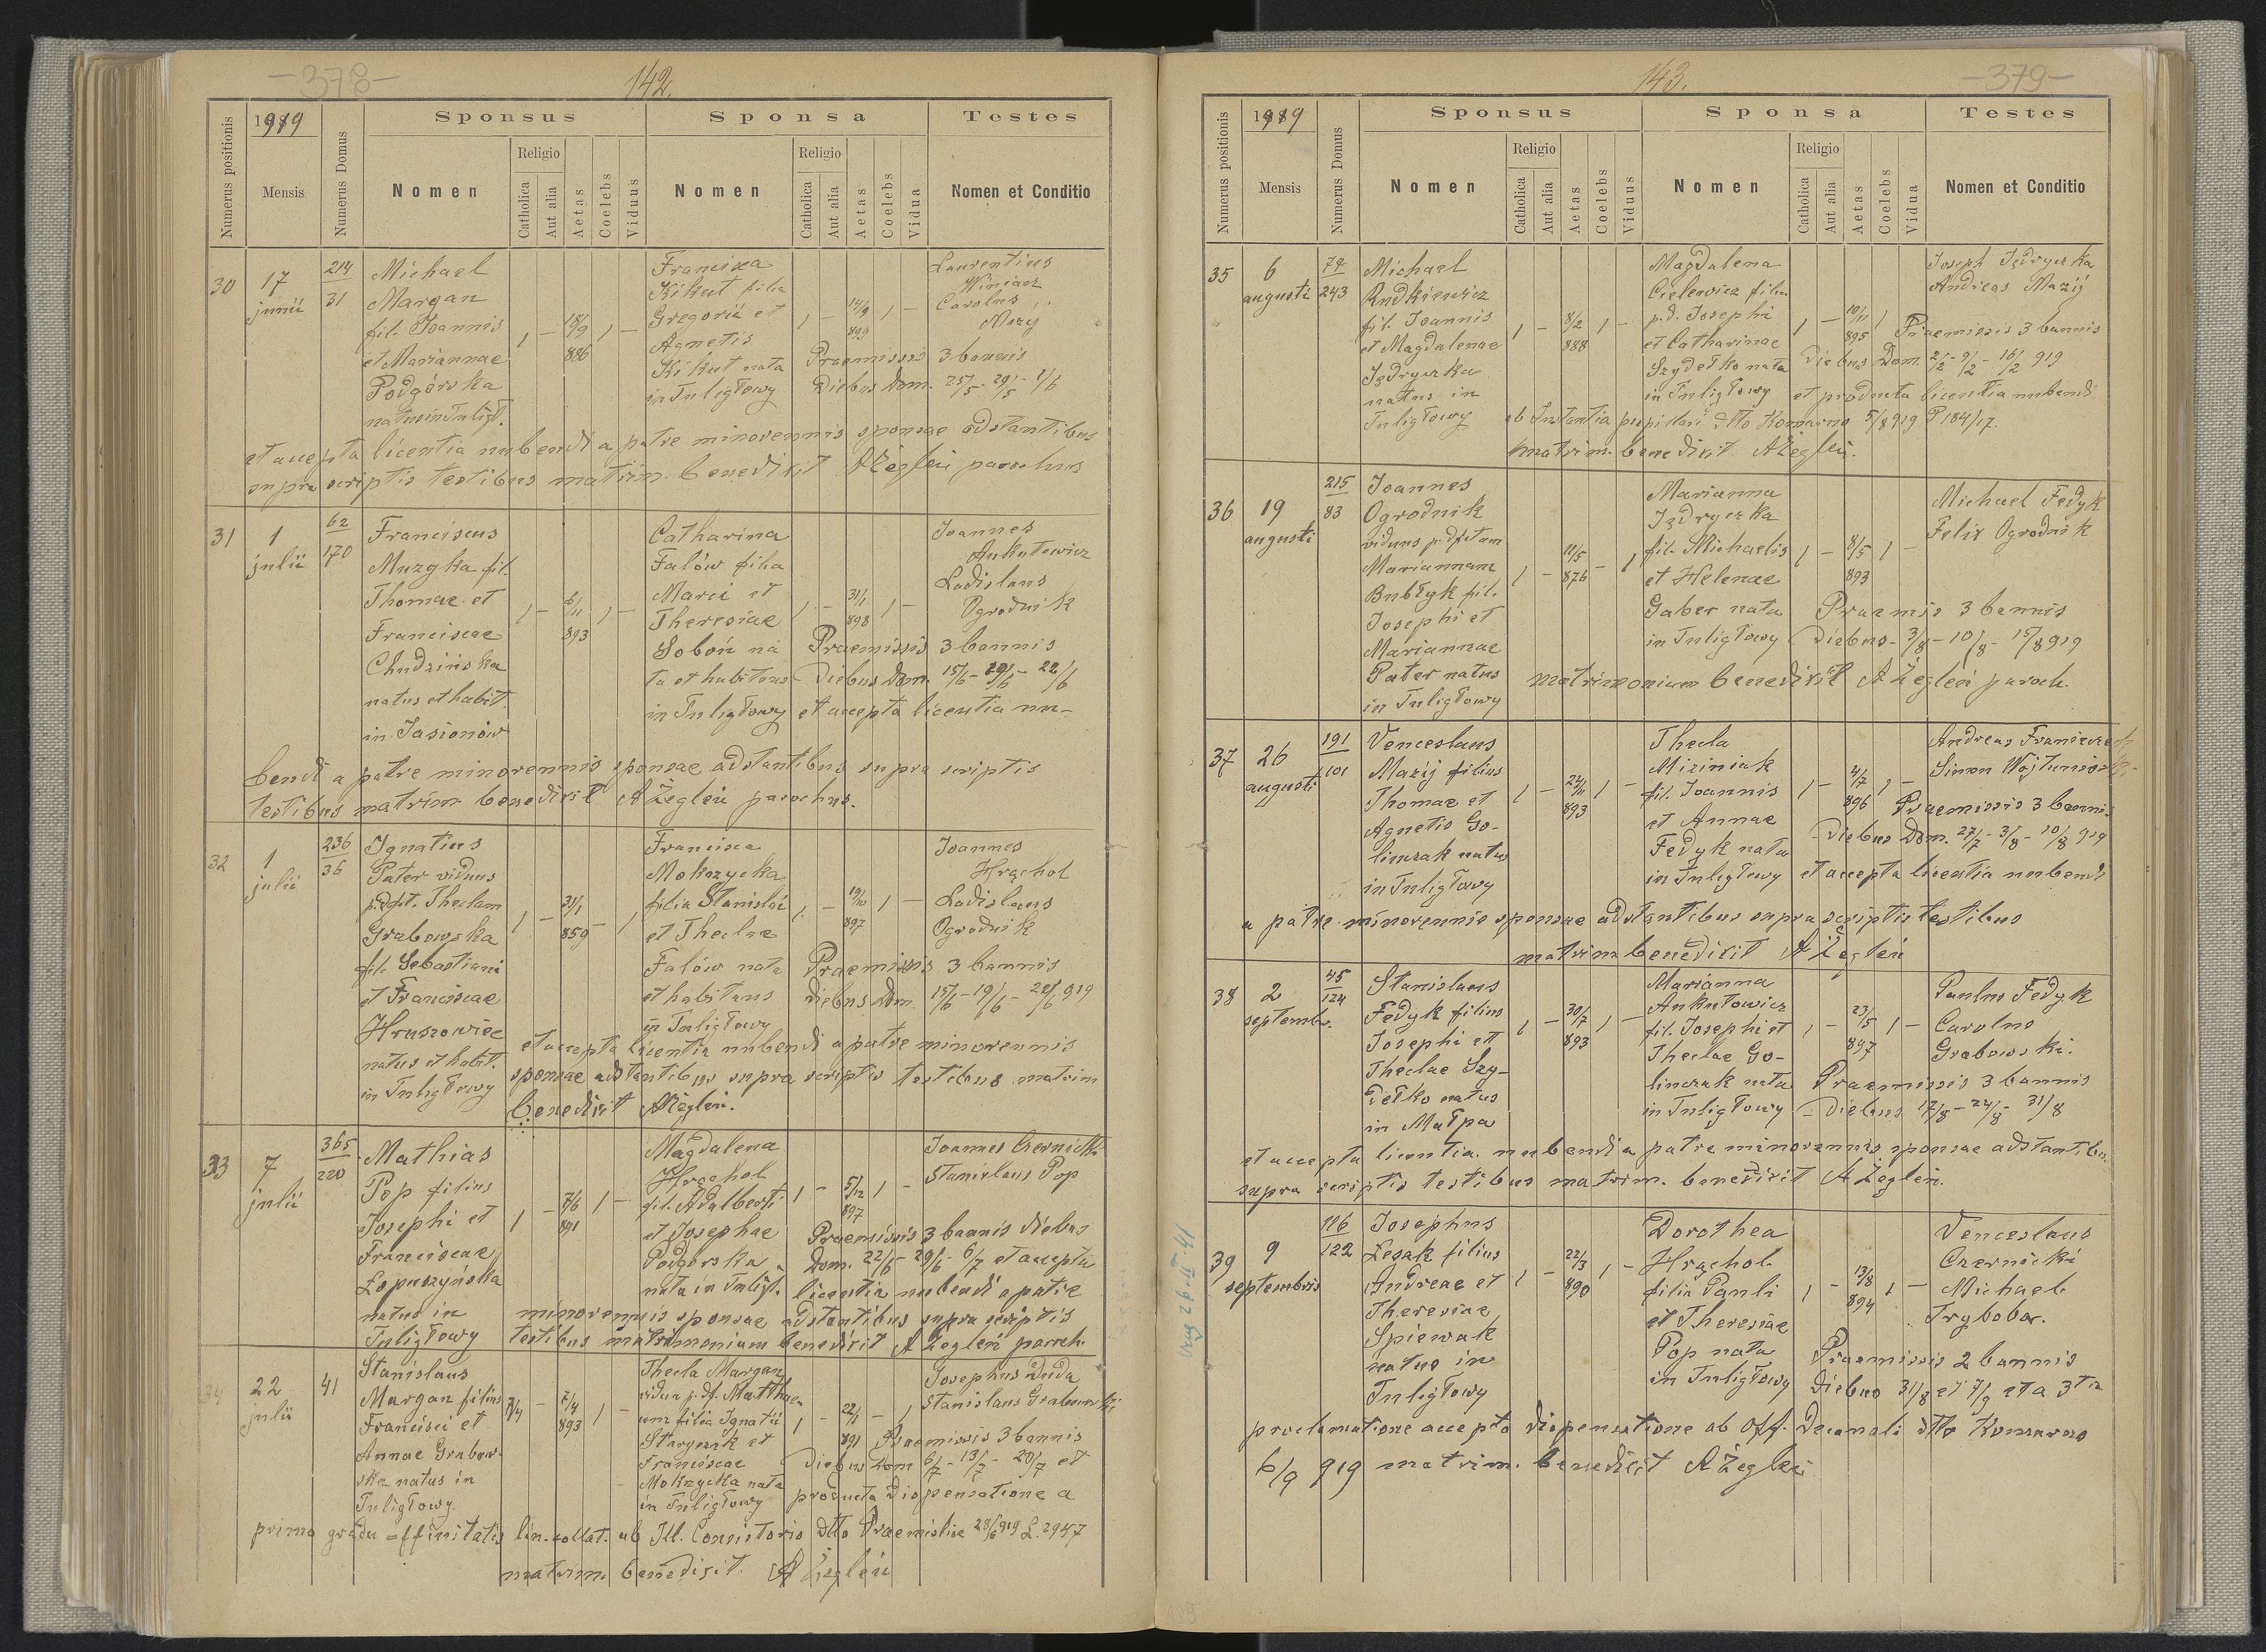 -378-
142.
Numerus positionis
1919
Mensis
Numerus Domus
Sponsus
Nomen
Religio
Catholica
Aut alia
Aetas
Coelebs
Viduus
Sponsa
Nomen
Religio
Catholica
Aut alia
Aetas
Coelebs
Vidua
Testes
Nomen et Conditio
30
17
junii
214
31
Michael
Margan
fil. Joannis
et Mariannae
Podgórska
natus in Tuligł.
1 - 18/9 886 1 -
Francisca
Kikut filia
Gregorii et
Agnetis
Kikut nata
in Tuligłowy
1 - 14/9 899 1 -
Laurentius
Winiarz
Carolus
Mazy
Praemissis 3 bannis
Diebus Dom. 25/5 - 29/5 - 1/6
et accepta licentia nubendi a patre minorennis sponsae adstantibus
supra scriptis testibus matrim. benedixit AŻegleń parochus
31
1
julii
62
170
Franciscus
Muzyka fil.
Thomae et
Franciscae
Chudzińska
natus et habit.
in Jasionów
1 - 6/11 893 1 -
Catharina
Falów filia
Marii et
Theresiae
Soboń na
ta et habitans
in Tuligłowy
1 - 31/1 898 1 -
Joannes
Ankutowicz
Ladislaus
Ogrodnik
Praemissis 3 bannis
Diebus Dom. 15/6 - 19/6 - 22/6
et accepta licentia nu-
bendi a patre minorennis sponsae adstantibus supra scriptis
testibus matrim. benedixit AŻegleń parochus.
32
1
julii
236
36
Ignatius
Pater viduus
p. dft. Theclam
Grabowska
fil. Sebastiani
et Franciscae
Hruszowiec
natus et habit.
in Tuligłowy
1 - 31/1 859 - 1
Francisca
Mokrzycka
filia Stanislai
et Theclae
Falów nata
et habitans
in Tuligłowy
1. - 19/10 897 1 -
Joannes
Hrachol
Ladislaus
Ogrodnik
Praemissis 3 bannis
diebus Dom. 15/6 - 19/6 - 22/6 919
et accepta licentia nubendi a patre minorennis
sponsae adstantibus supra scriptis testibus matrim
benedixit AŻegleń.
33
7
julii
365
220
Mathias
Pop filius
Josephi et
Franciscae
Łopuszyńska
natus in
Tuligłowy
1 - 7/6 891 1 -
Magdalena
Hrachol
fil. Adalberti
et Josephae
Podgórska
nata in Tuligł.
1 - 5/12 897 1 -
Joannes Czernicki
Stanislaus Pop
Praemissis 3 bannis diebus
Dom. 22/6 - 29/6 - 6/7 et accepta
licentia nubendi a patre
minorennis sponsae adstantibus supra scriptis
testibus matrimonium benedixit AŻegleń paroch.
34
22
julii
41
Stanislaus
Margan filius
Francisci et
Annae Grabow-
ska natus in
Tuligłowy.
7/4 - 7/4 893 1 -
Thecla Margan
vidua p. df. Matthae-
um filia Ignatii
Staryszak et
Franciscae
Mokrzycka nata
in Tuligłowy
1 - 22/1 891 - 1
Josephus Duda
Stanislaus Grabowski
Praemissis 3 bannis
Diebus Dom 6/7 - 13/7 - 20/7 et
producta Dispensatione a
primo gradu affinitatis lin. collat. ab Ill. Consistorio dtto Praemisliae 28/6 919 L. 2947
matrim. benedixit AŻegleń
143.
-379-
Numerus positionis
1919
Mensis
Numerus Domus
Sponsus
Nomen
Religio
Catholica
Aut alia
Aetas
Coelebs
Viduus
Sponsa
Nomen
Religio
Catholica
Aut alia
Aetas
Coelebs
Vidua
Testes
Nomen et Conditio
35
6
augusti
74
243
Michael
Rudkiewicz
fil. Joannis
et Magdalenae
Jędryszka
natus in
Tuligłowy
1 - 8/2 888 1 -
Magdalena
Cielewicz filia
p. d. Josephi
et Catharinae
Szydełko nata
in Tuligłowy
1 - 10/11 895 1
Joseph Jędryszka
Andreas Mazij
Praemissis 3 bannis
Diebus Dom. 2/2 - 9/2 - 16/2 919
et producta licentia nubendi
ab Instantia pupillari dtto Komarno 5/8 919 P 184/17.
matrim. benedixit AŻegleń.
36
19
augusti
215
83
Joannes
Ogrodnik
viduus p. dfctam
Mariannam
Bubłyk fil.
Josephi et
Mariannae
Pater natus
in Tuligłowy
1 - 11/5 876 - 1
Marianna
Jędryszka
fil. Michaelis
et Helenae
Gaber nata
in Tuligłowy
1 - 8/5 893 1 -
Michael Fedyk
Felix Ogrodnik
Praemis 3 bannis
Diebus - 3/8 - 10/8 - 15/8 919
matrimonium benedixit AŻegleń paroch.
37
26
augusti
191
101
Venceslaus
Mazij filius
Thomae et
Agnetis Go-
linczak natus
in Tuligłowy
1 - 24/11 893 1 -
Thecla
Miziniak
fil. Joannis
et Annae
Fedyk nata
in Tuligłowy
1 - 4/7 896 1 -
Andreas Franiczek
Simon Wojtunio
Praemissis 3 bannis
Diebus Dom. 27/7 - 3/8 - 10/8 919
et accepta licentia nubendi
a patre minorennis sponsae adstantibus supra scriptis testibus
matrim benedixit AŻegleń
38
2
septembr.
45
124
Stanislaus
Fedyk filius
Josephi et
Theclae Szy-
dełko natus
in Małpa
1 - 30/7 893 1 -
Marianna
Ankutowicz
fil. Josephi et
Theclae Go-
linczak nata
in Tuligłowy
1 - 23/5 897 1 -
Paulus Fedyk
Carolus
Grabowski.
Praemissis 3 bannis
Diebus 17/8 - 24/8 - 31/8
et accepta licentia nubendi a patre minorennis sponsae adstantibus
supra scriptis testibus matrim. benedixit AŻegleń.
39
9
septembris
116
122
Josephus
Łesak filius
Andreae et
Theresiae
Spiewak
natus in
Tuligłowy
1 - 22/3 890 1 -
Dorothea
Hrachol
filia Pauli
et Theresiae
Pop nata
in Tuligłowy
1 - 13/8 894 1 -
Venceslaus
Czernicki
Michael
Tryboba.
Praemissis 2 bannis
Diebus 31/8 et 7/9 et a 3tia
proclamatione accepta dispensatione ab Off. Decanali dtto Komarno
6/9 919 matrim. benedixit AŻegleń